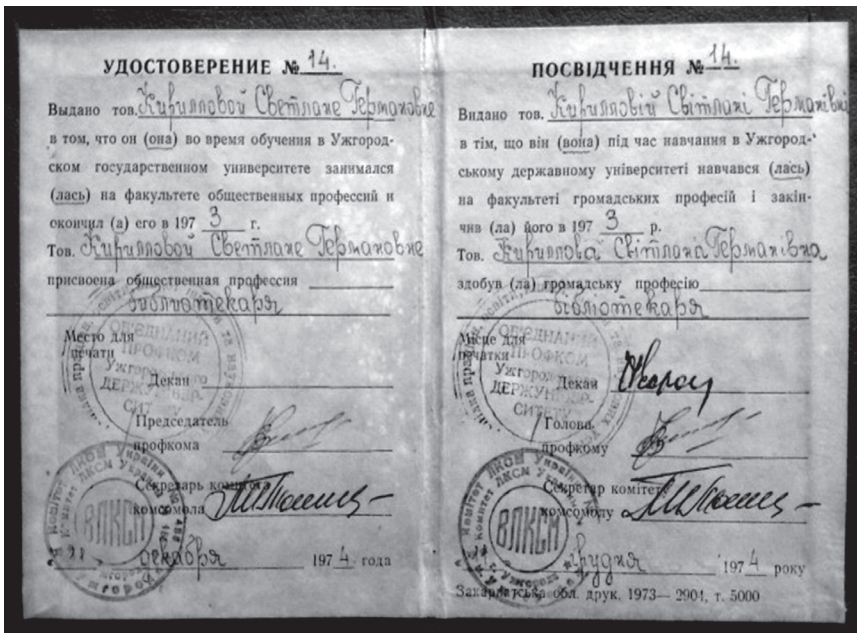 УДОСТОВЕРЕНИЕ № 14.
Выдано тов. Кирилловой Светлане Германовне
в том, что он (она) во время обучения в Ужгород-
ском государственном университете занимался
(лась) на факультете общественных профессий и
окончил (а) его в 1973 г.
Тов. Кирилловой Светлане Германовне
присвоена общественная профессия
библиотекаря
Место для
печати
ОБ'ЄДНАНИЙ
ПРОФКОМ
Ужгородського
ДЕРЖУНІВЕР-
СИТЕТУ
Декан
Председатель
профкома
Секретарь комитета
комсомола
ВЛКСМ
декабря 1974 года
ПОСВІДЧЕННЯ № 14.
Видано тов. Кирилловій Світлані Германівні
в тім, що він (вона) під час навчання в Ужгород-
ському державному університеті навчався (лась)
на факультеті громадських професій і закін-
чив (ла) його в 1973 р.
Тов. Кириллова Світлана Германівна
здобув (ла) громадську професію
бібліотекаря
Місце для
печатки
ОБ'ЄДНАНИЙ
ПРОФКОМ
Ужгородського
ДЕРЖУНІВЕР-
СИТЕТУ
Декан
Голова
профкому
Секретар комітету
комсомолу
ВЛКСМ
грудня 1974 року
Закарпатська обл. друк. 1973— 2901, т. 5000